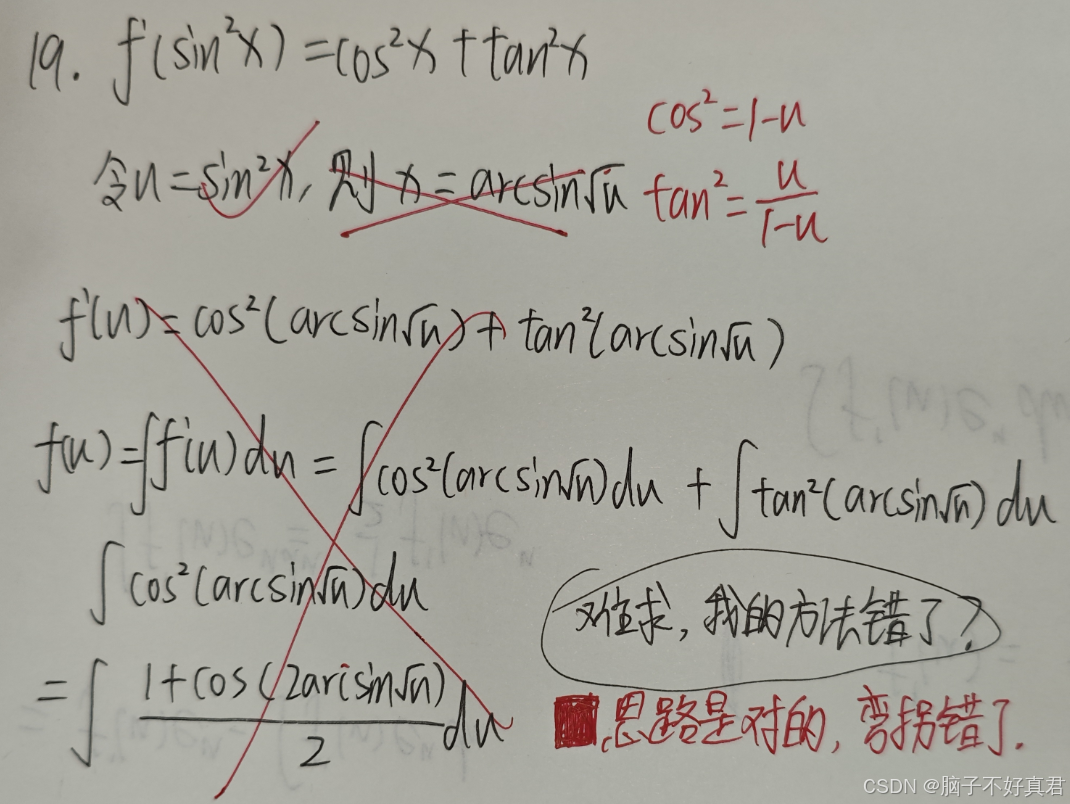 19. f'(sin²x) = cos²x + tan²x
cos² = 1-u
令u = sin²x, 则 x = arcsin√u
tan² = u/(1-u)
f'(u) = cos²(arcsin√u) + tan²(arcsin√u)
f(u) = ∫f'(u)du = ∫cos²(arcsin√u)du + ∫tan²(arcsin√u)du
∫cos²(arcsin√u)du
难求, 我的方法错了?
= ∫ (1+cos(2arcsin√u))/2 du
思路是对的, 弯拐错了.
CSDN @脑子不好真君